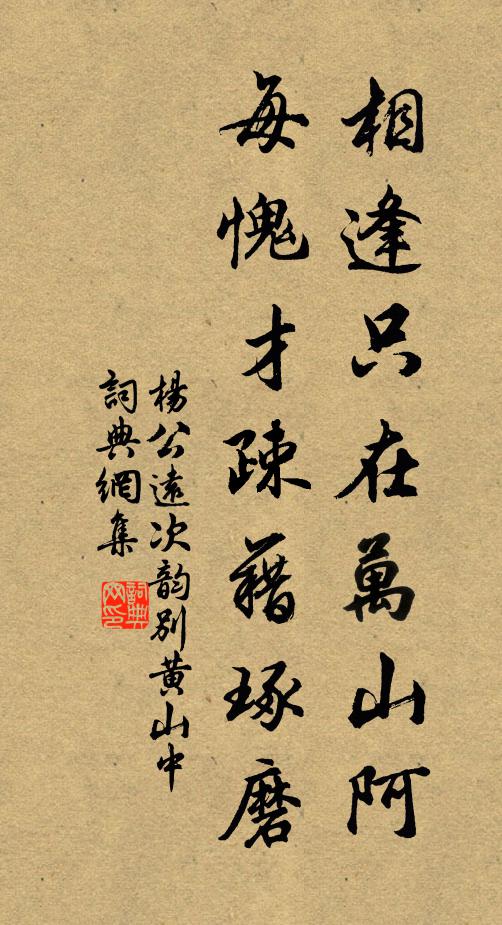 相逢只在萬山阿
每愧才疎藉琢磨
楊公遠次韵別黄山中
詞典網集
詞典网印